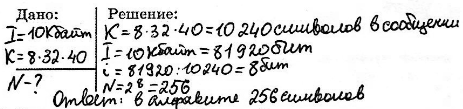 Дано:
I=10Кбайт
K=8·32·40
N-?
Решение:
K=8·32·40=10240символов в сообщении
I=10Кбайт=81920бит
i=81920:10240=8бит
N=2⁸=256
Ответ: в алфавите 256символов